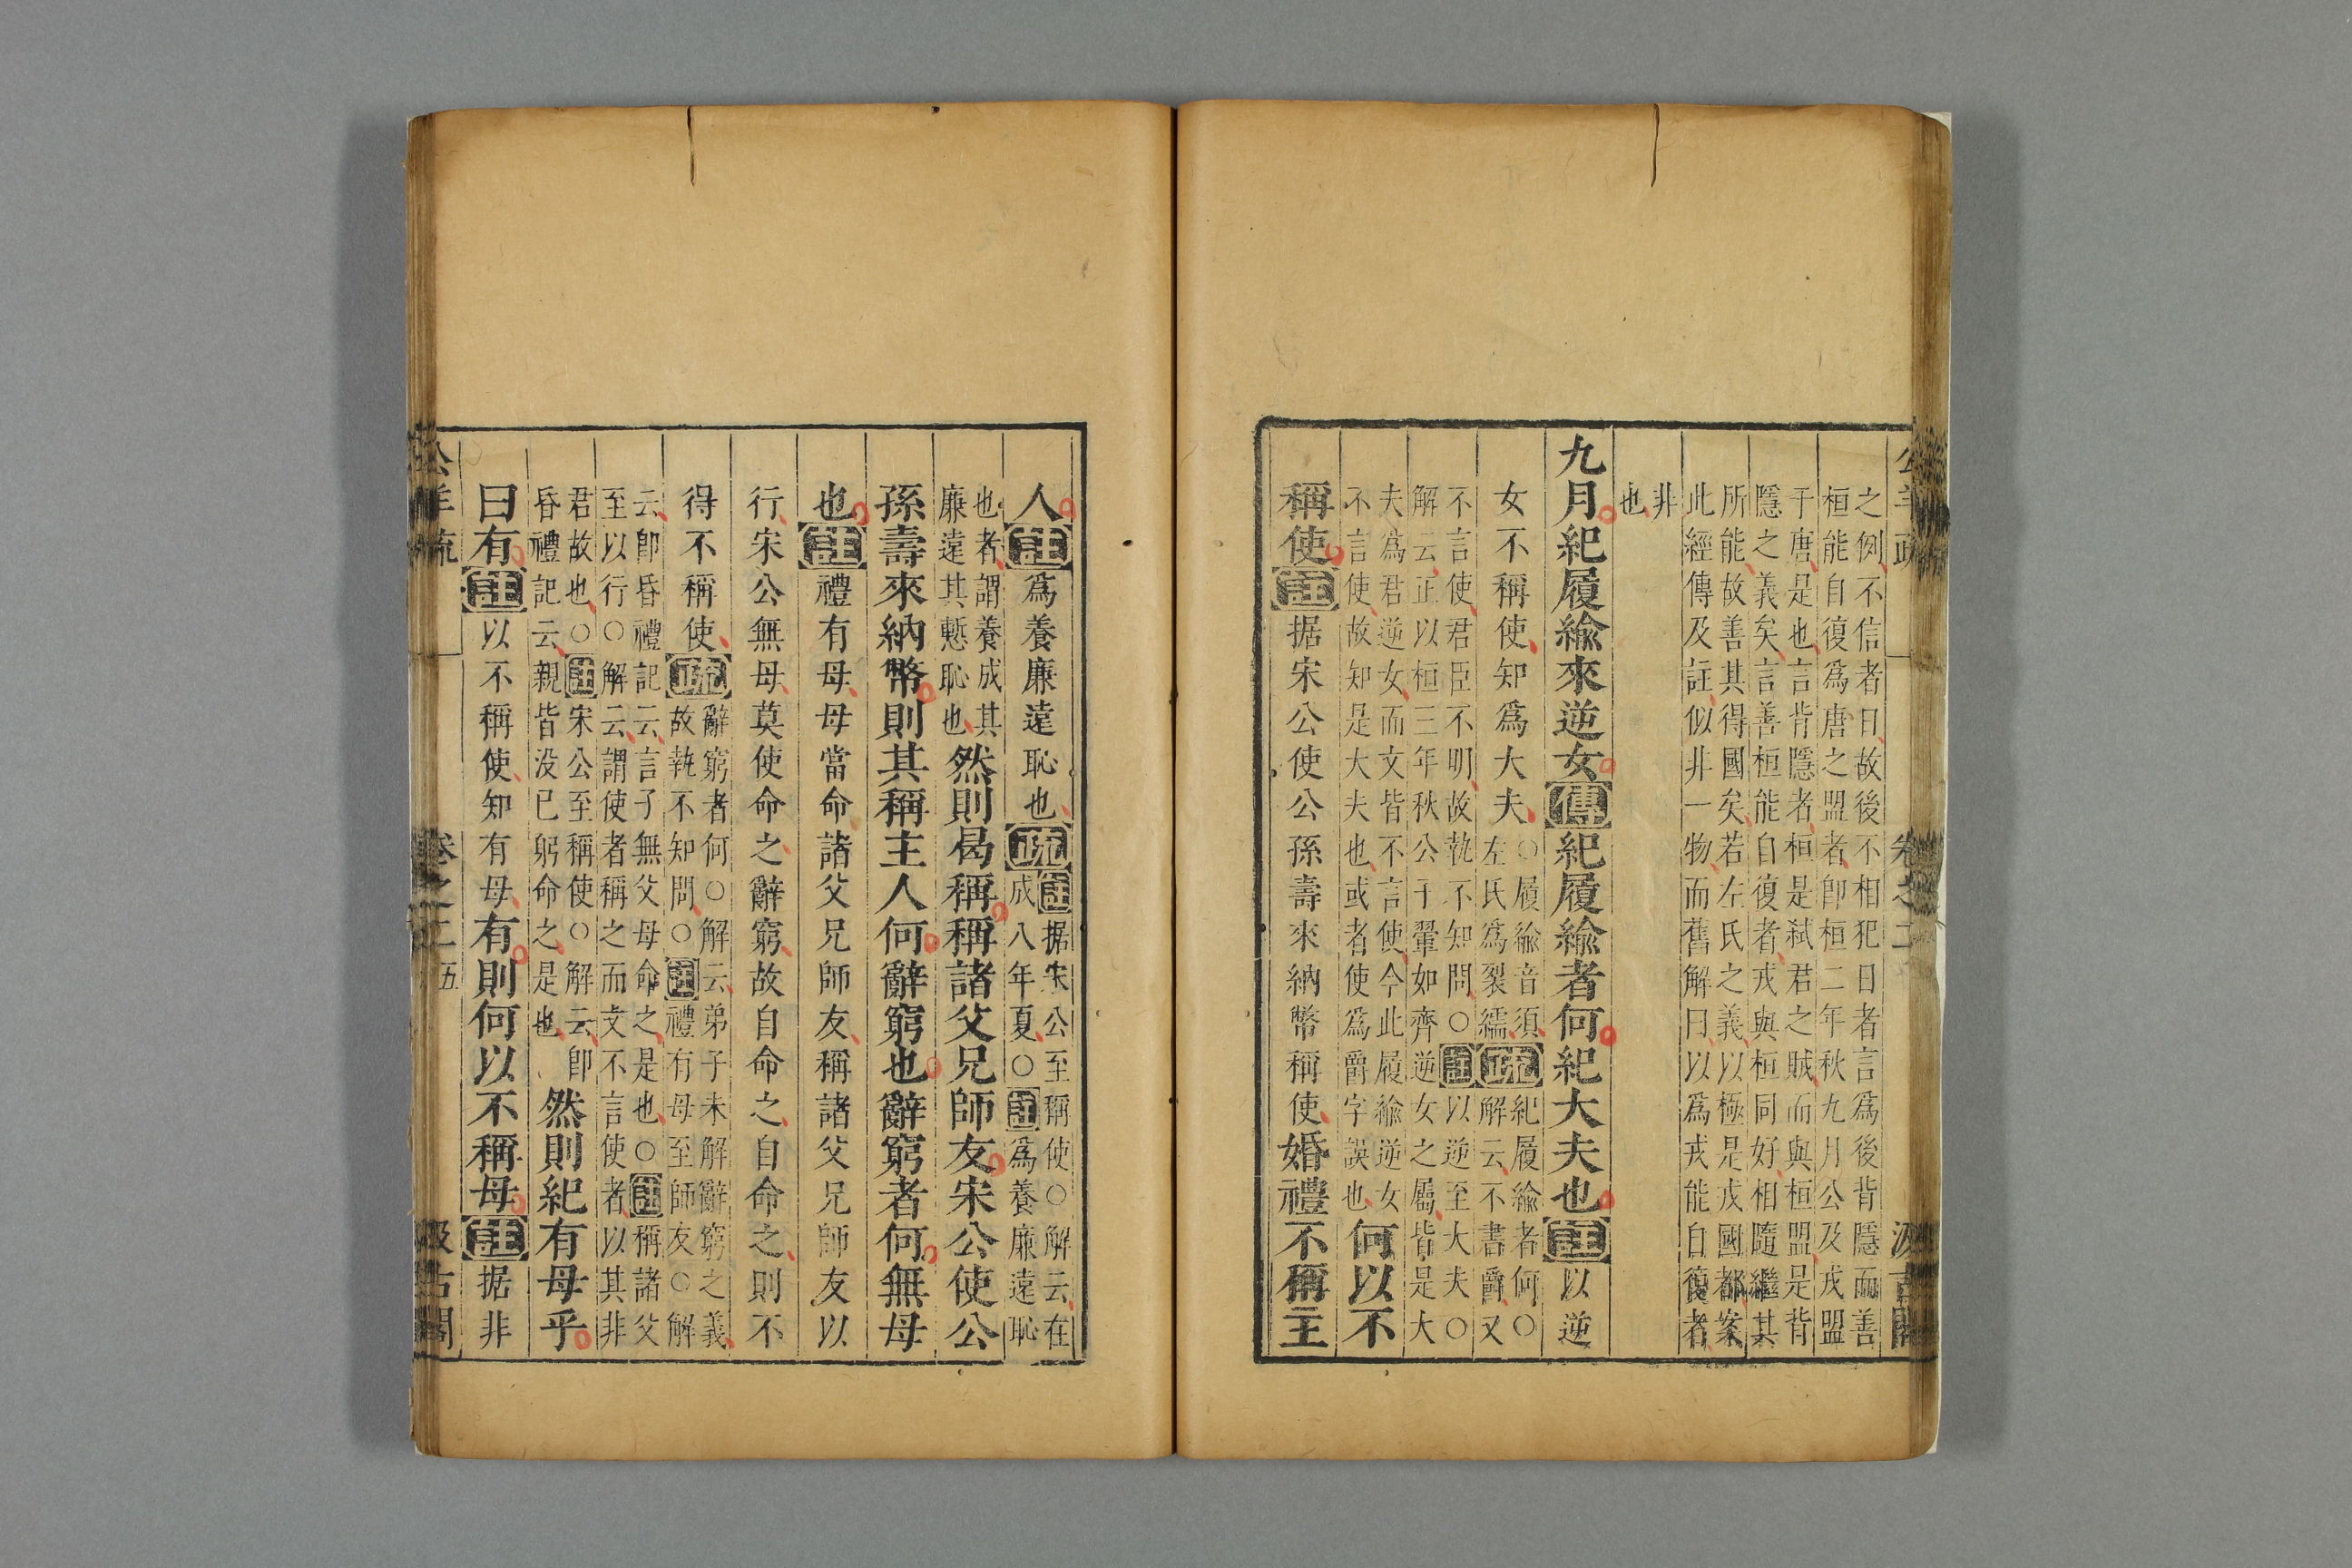 公羊疏 卷之二 汲古閣
之例不信者日故後不相犯日者言爲後背隱而善
桓能自復爲唐之盟者卽桓二年秋九月公及戎盟
于唐是也言背隱者桓是弒君之賊而與桓盟是背
隱之義矣言善桓能自復者戎與桓同好相隨繼其
所能故善其得國矣若左氏之義以極是戎國都案
此經傳及註似非一物而舊解曰以爲戎能自復者
非
也
九月紀履緰來逆女傳紀履緰者何紀大夫也註以逆
女不稱使知爲大夫○履緰音須
左氏爲裂繻疏紀履緰者何○
解云不書爵又
不言使君臣不明故執不知問○註以逆至大夫○
解云正以桓三年秋公子翬如齊逆女之屬皆是大
夫爲君逆女而文皆不言使今此履緰逆女
不言使故知是大夫也或者使爲爵字誤也何以不
稱使註据宋公使公孫壽來納幣稱使婚禮不稱主
人註爲養廉遠恥也疏註据宋公至稱使○解云在
成八年夏○註爲養廉遠恥
也者謂養成其
廉遠其慙恥也然則曷稱稱諸父兄師友宋公使公
孫壽來納幣則其稱主人何辭窮也辭窮者何無母
也註禮有母母當命諸父兄師友稱諸父兄師友以
行宋公無母莫使命之辭窮故自命之自命之則不
得不稱使疏辭窮者何○解云弟子未解辭窮之義
故執不知問○註禮有母至師友○解
云卽昏禮記云言子無父母命之是也○註稱諸父
至以行○解云謂使者稱之而文不言使者以其非
君故也○註宋公至稱使○解云卽
昏禮記云親皆没已躬命之是也然則紀有母乎
曰有註以不稱使知有母有則何以不稱母註据非
公羊疏 卷之二 五 汲古閣